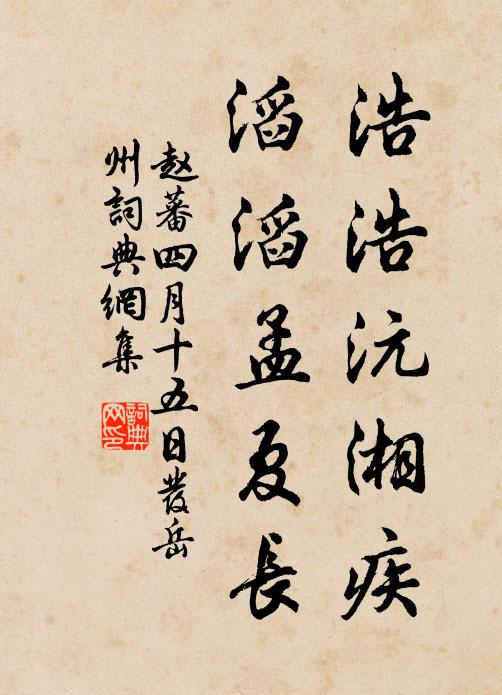 浩浩沅湘疾
滔滔孟夏長
赵蕃四月十五日發岳
州詞典網集
詞典网印